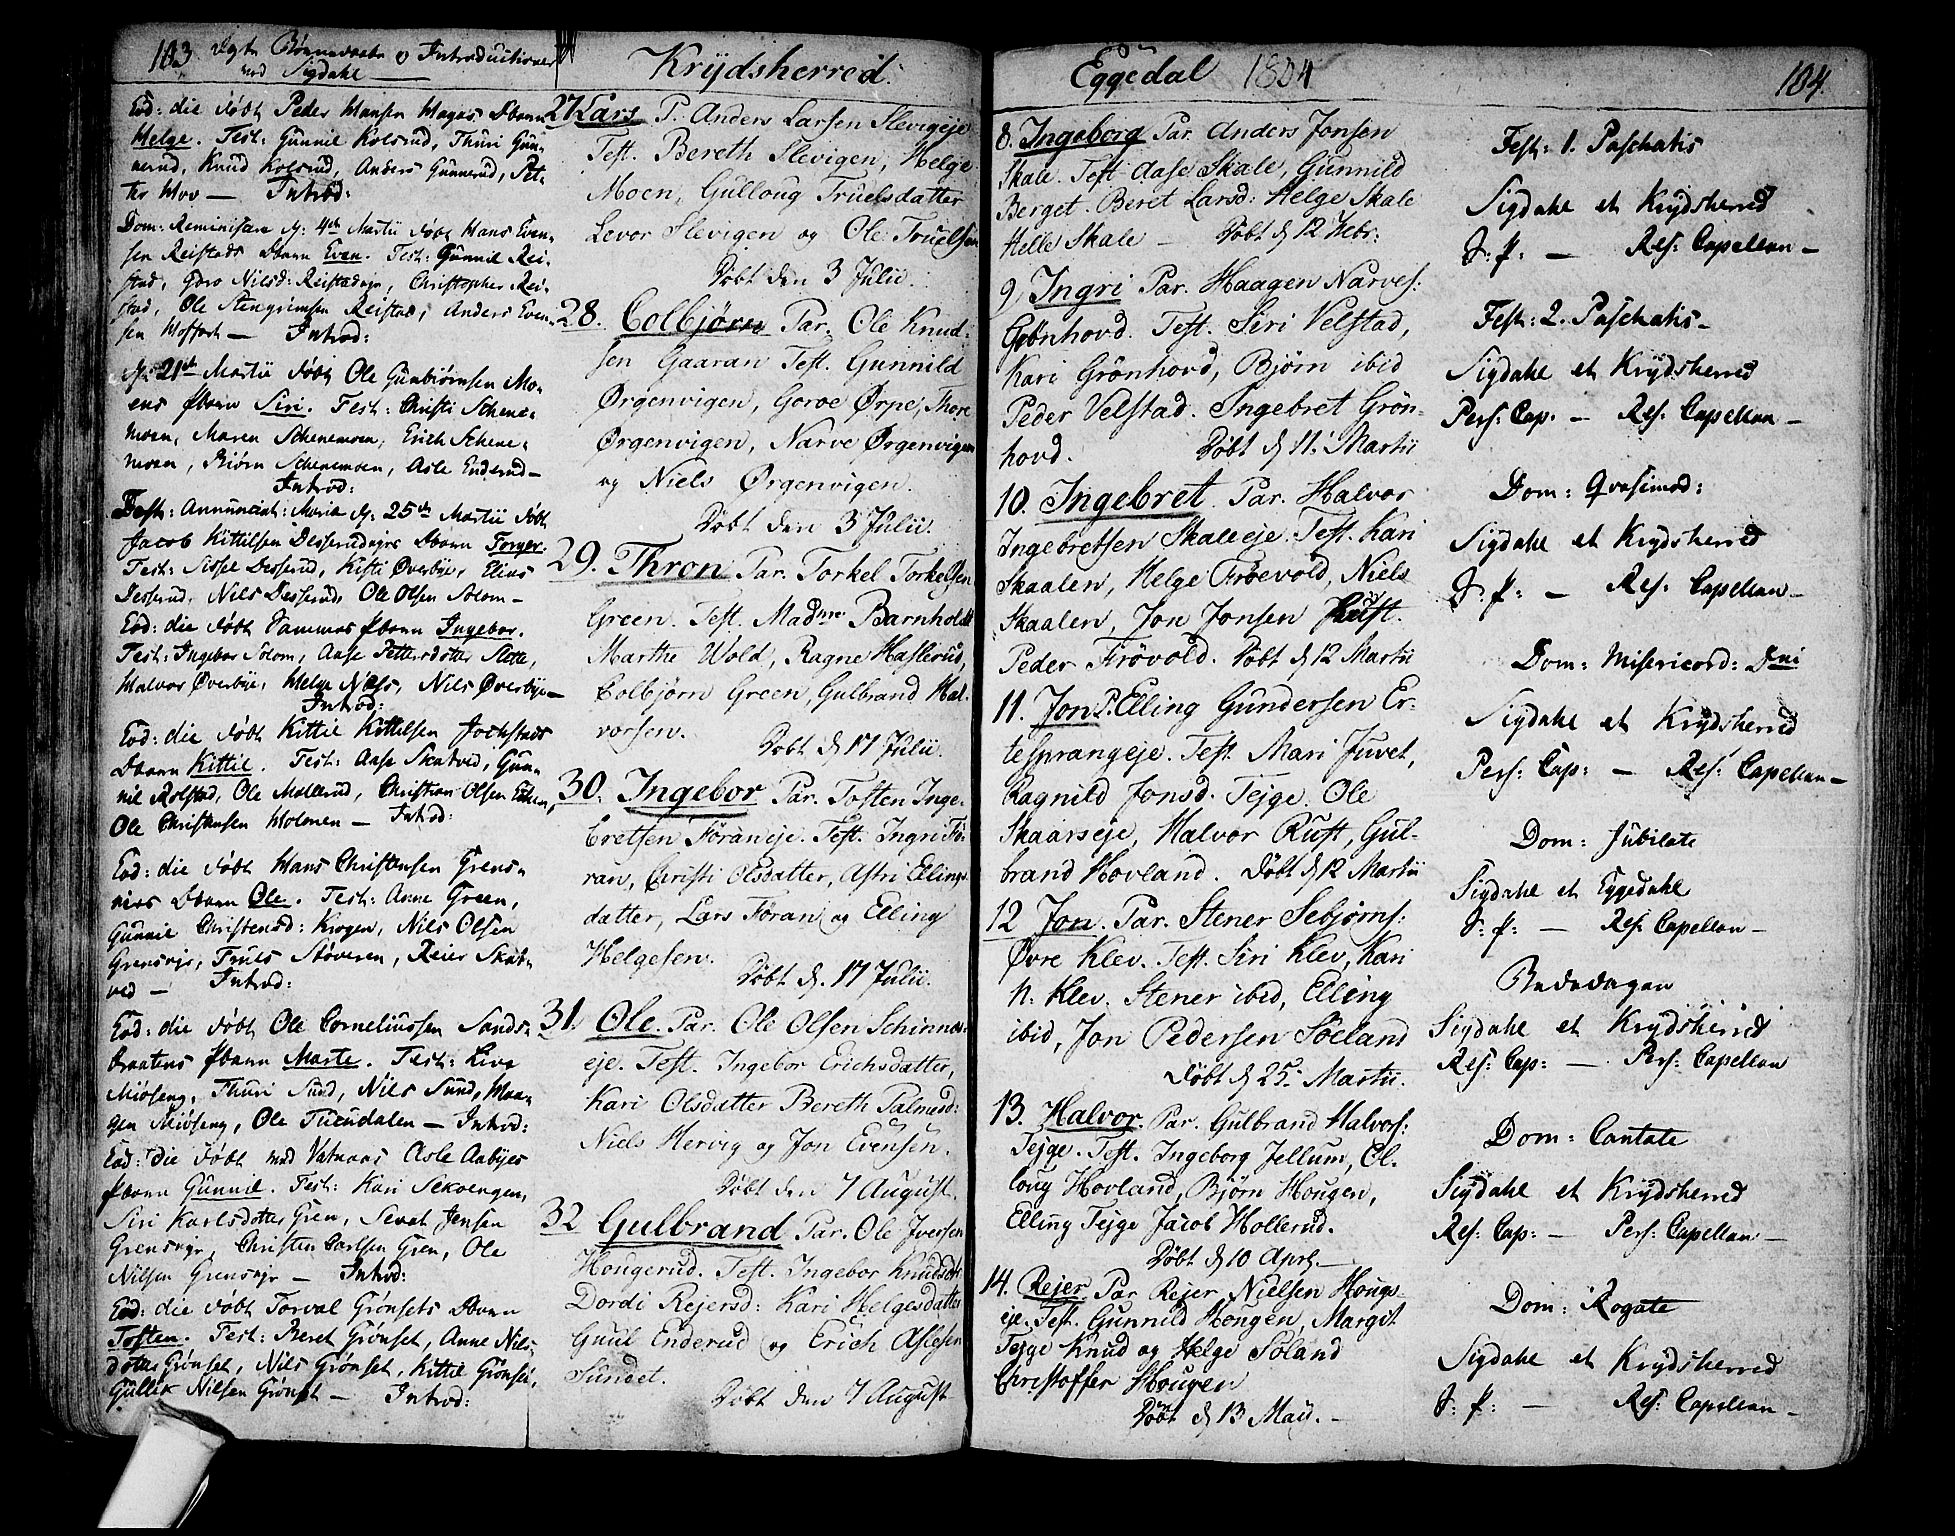 103 Døbte Børn Introductioner
ved Sigdahl
Eod: die døbt Peder Hansen Hagas Dbarn
Helge. Test: Gunnil Kolsrud, Thuri Gun-
nerud, Knud Kolsrud, Anders Gunnerud, Pet-
ter Moo — Introd:
Dom: Reminiscere d: 4de Martii døbt Hans Even-
sen Reistads Dbarn Even. Test: Gunnil Rei-
stad, Goro Nilsd: Reistadeje, Christopher Rei-
stad, Ole Stengrimsen Reistad, Anders Even-
sen Hoffart — Introd:
d: 21de Martii døbt Ole Gunbiørnsen Mo-
ens Pbarn Siri. Test: Christi Schene-
moen, Maren Schenemoen, Erich Schene-
moen, Biørn Schenemoen, Asle Enderud —
Introd:
Festo: Annunciat: Mariæ d: 25de Martii døbt
Jacob Kittilsen Desserudejes Dbarn Torger.
Test: Sissel Desserud, Kisti Øverbye, Elias
Desserud, Nils Desserud, Ole Olsen Solom —
Eod: die døbt Tammes Pbarn Ingebor.
Test: Ingebor Solom, Aase Pettersdotter Slette,
Halvor Øverbye, Helge Næss, Nils Øverbye —
Introd:
Eod: die døbt Kittil Kittilsen Jochstads
Dbarn Kittil. Test: Aase Skatved, Gun-
nil Rolstad, Ole Mollerud, Christian Olsen Eken,
Ole Christensen Holmen — Introd:
Eod: die døbt Hans Christensen Grens-
eies Dbarn Ole. Test: Anne Green,
Gunnil Christensd: Krogen, Nils Olsen
Grenseje, Truls Støveren, Reier Skat-
ved — Introd:
Eod: die døbt Ole Corneliussen Sands-
braatens Pbarn Marte. Test: Live
Miøseng, Thuri Sund, Nils Sund, Haa-
gen Miøseng, Ole Tuendalen — Introd:
Eod: die døbt ved Vatnaas Asle Aabyes
Pbarn Gunnil. Test: Kari Sekvengen,
Siri Karlsdotter Gren, Sevat Jensen
Grenseje, Christen Carlsen Gren, Ole
Nilsen Grenseje — Introd:
Eod: die døbt Torval Grønsets Dbarn
Tosten. Test: Beret Grønset, Anne Nils-
dotter Grønset, Nils Grønset, Kittil Grønset,
Gullik Nilsen Grønset — Introd:
Krydsherred.
27 Lars P. Anders Larsen Slevigeje
Test. Bereth Slevigen, Helge
Moen, Gulloug Truelsdatter
Levor Slevigen og Ole Truelsen
Døbt den 3 Julii.
28. Colbjørn Par. Ole Knud-
sen Gaaran Test. Gunnild
Ørgenvigen, Goroe Ørpe, Thore
Ørgenvigen, Narve Ørgenvigen
og Niels Ørgenvigen.
Døbt den 3 Julii.
29. Thron Par. Torkel Torkelsen
Green. Test. Madme Barnholdt
Marthe Wold, Ragne Haslerud,
Colbjørn Green, Gulbrand Hal-
vorsen.
Døbt d 17 Julii.
30. Ingebor Par. Tosten Inge-
bretsen Foraneje. Test. Ingri Fo-
ran, Christi Olsdatter, Astri Ellings-
datter, Lars Foran og Elling
Helgesen.
Døbt d. 17 Julii.
31. Ole. Par. Ole Olsen Schinnes-
eje. Test. Ingebor Erichsdatter,
Kari Olsdatter Bereth Palmesd:
Niels Hervig og Jon Evensen.
Døbt den 7 August.
32 Gulbrand Par. Ole Iversen
Hougerud. Test. Ingebor Knudsdtr
Dordi Rejersd: Kari Helgesdatter
Guul Enderud og Erich Aslesen
Sundet.
Døbt den 7 August
Eggedal 1804
8. Ingeborg Par. Anders Jonsen
Skale. Test. Aase Skale, Gunnild
Berget. Beret Larsd: Helge Skale
Helle Skale — Døbt d 12 Febr:
9, Ingri Par. Haagen Narves:
Grønhovd. Test. Siri Velstad,
Kari Grönhovd, Bjørn ibid
Peder Velstad. Ingebret Grön-
hovd. Døbt d 11. Martii
10. Ingebret. Par. Halvor
Ingebretsen Skaleeje. Test. Kari
Skaalen, Helge Frøevold, Niels
Skaalen, Jon Jonsen Rust.
Peder Frövold. Døbt d 12 Martii
11. Jon P. Elling Gundersen Er-
tesprangeje. Test. Mari Juvet,
Ragnild Jonsd. Tejge. Ole
Skaarseje, Halvor Rust, Gul-
brand Hovland. Døbt d 12 Martii
12 Jon. Par. Stener Sebjørns:
Øvre Klev. Test. Siri Klev, Kari
N: Klev. Stener ibid, Elling
ibid, Jon Pedersen Söeland
Døbt d 25. Martii.
13. Halvor. Par. Gulbrand Halvors:
Tejge. Test. Ingeborg Jellum, Ol-
loug Hovland, Bjørn Hougen,
Elling Tejge Jacob Hollerud.
Døbt d 10 April. —
14. Rejer Par Rejer Nielsen Hougs-
eje. Test. Gunnild Hougen, Margit
Tejge Knud og Helge Söland
Christoffer Hougen
Døbt d 13 Maii. —
104.
Fest: 1. Paschatis
Sigdahl et Krydsherred
S. p: — Res: Capellan —
Fest: 2. Paschatis —
Sigdahl et Krydsherred
Pers: Cap: — Res: Capellan —
Dom: Qvasimod:
Sigdahl et Krydsherred
S. p: — Res: Capellan —
Dom: Misericord: Dni
Sigdahl et Krydsherred
Pers: Cap: — Res: Capellan —
Dom: Jubilate
Sigdahl et Eggedahl
S: p: — Res: Capellan —
Bededagen
Sigdahl et Krydsherred
Res: Cap: — Pers: Capellan
Dom: Cantate
Sigdahl et Krydsherred
Res: Cap: — Pers: Capellan —
Dom: Rogate
Sigdahl et Krydsherred
S. p: — Res: Capellan —